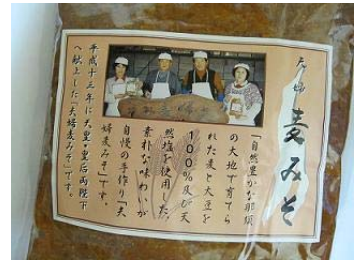 夫婦 麦みそ
「自然豊かな那須
の大地で育てら
れた麦と大豆を
100%及び天
然塩を使用した、
素朴な味わいが
自慢の手作り「夫
婦麦みそ」です。
平成十三年に天皇・皇后両陛下
へ献上した「夫婦麦みそ」です。